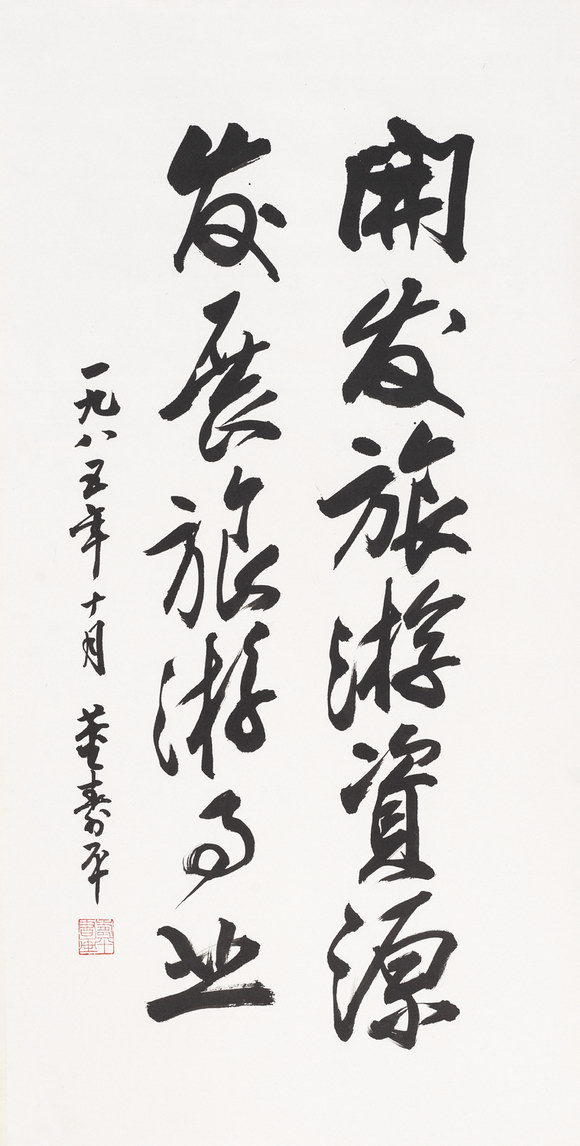 開发旅游資源
发展旅游事业
一九八五年十月 董寿平